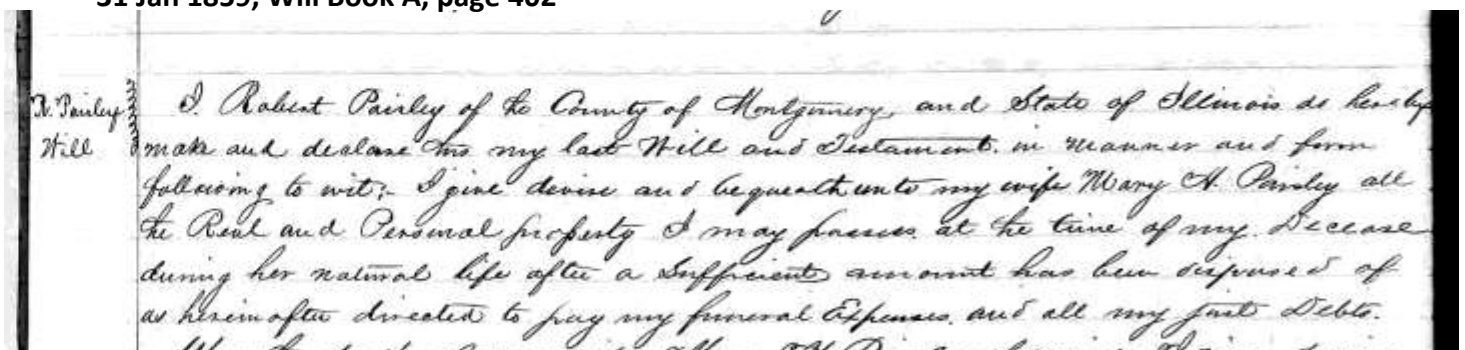 31 Jan 1859, Will Book A, page 402
R. Paisley
Will
I. Robert Paisley of the County of Montgomery, and State of Illinois do hereby
make and declare this my last Will and Testament. in manner and form
following to wit;- I give devise and bequeath unto my wife Mary H. Paisley all
the Real and Personal property I may possess at the time of my Decease
during her natural life after a Sufficient amount has been disposed of
as hereinafter directed to pay my funeral Expenses. and all my just Debts.